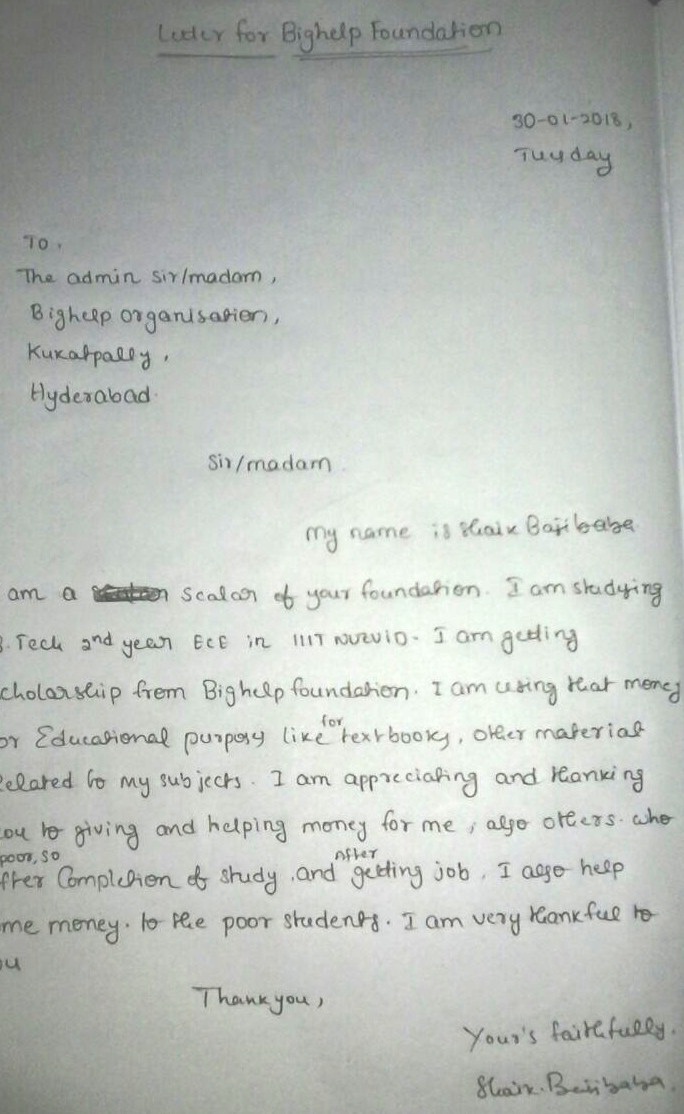 Letter for Bighelp Foundation
30-01-2018,
Tuesday
To,
The admin sir/madam,
Bighelp organisation,
Kukatpally,
Hyderabad.
Sir/madam
My name is Shaik Bajibaba
am a scalar of your foundation. I am studying
B.Tech 2nd year ECE in IIIT NUZVID. I am getting
cholarship from Bighelp foundation. I am using that money
or Educational purposy like for textbooks, other material
related to my subjects. I am appreciating and thanking
ou to giving and helping money for me, also others. who
poor, so
fter Completion of study, and After getting job, I also help
me money. to the poor students. I am very thankful to
ou
Thank you,
Your's faithfully.
Shaik.Bajibaba.